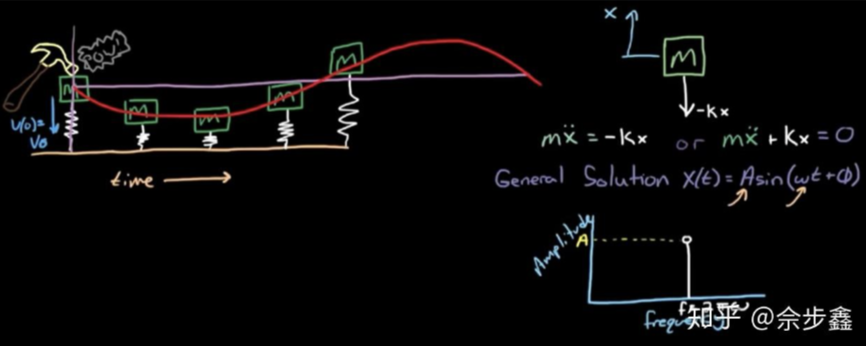 POW
M
M
M
M
M
V(0)=
V0
time
x
M
-Kx
mẍ = -Kx or mẍ + Kx = 0
General Solution X(t) = A sin(ωt+Φ)
Amplitude
A
frequency
知乎 @佘步鑫